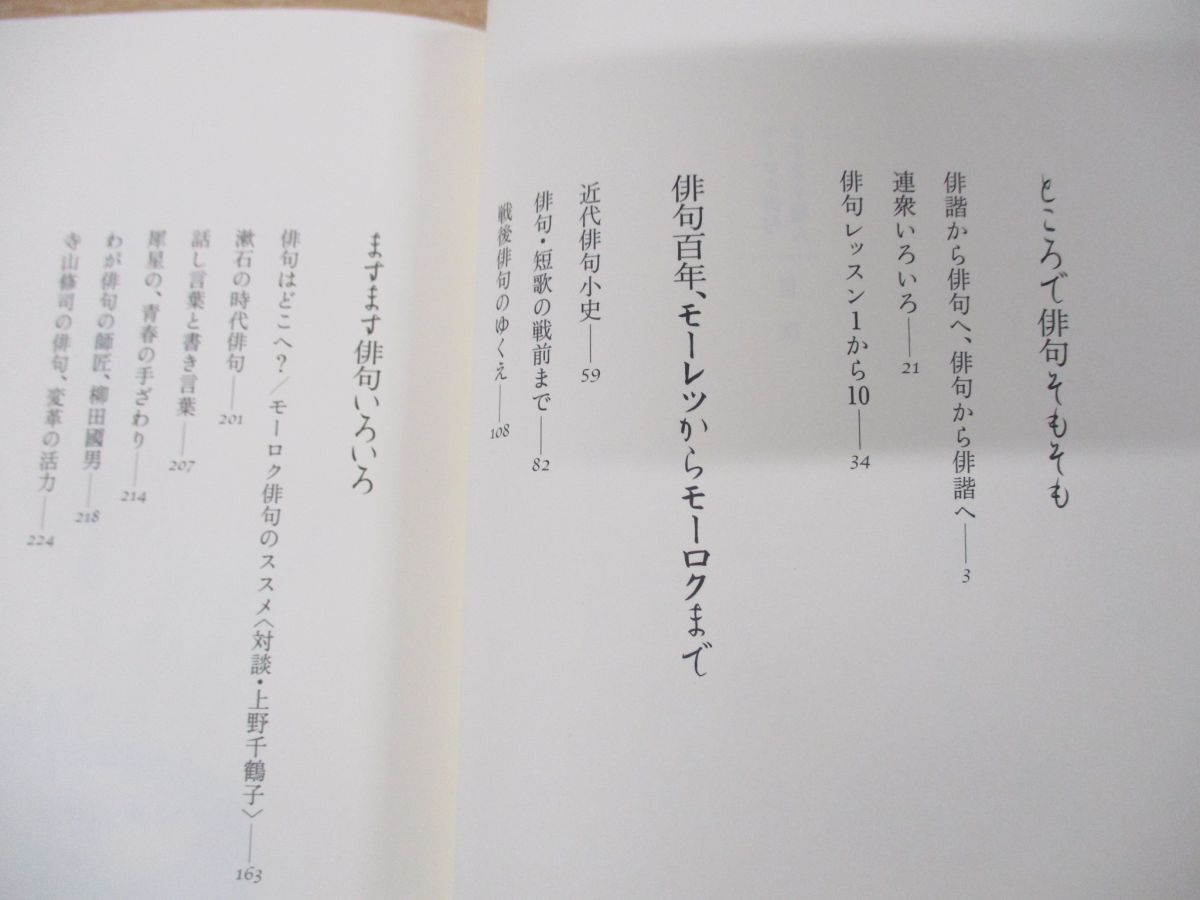 ところで俳句そもそも
俳諧から俳句へ、俳句から俳諧へ——3
連衆いろいろ——21
俳句レッスン1から10——34
俳句百年、モーレツからモーロクまで
近代俳句小史——59
俳句・短歌の戦前まで——82
戦後俳句のゆくえ——108
ますます俳句いろいろ
俳句はどこへ?／モーロク俳句のススメ〈対談・上野千鶴子〉——163
漱石の時代俳句——201
話し言葉と書き言葉——207
犀星の、青春の手ざわり——214
わが俳句の師匠、柳田國男——218
寺山修司の俳句、変革の活力——224